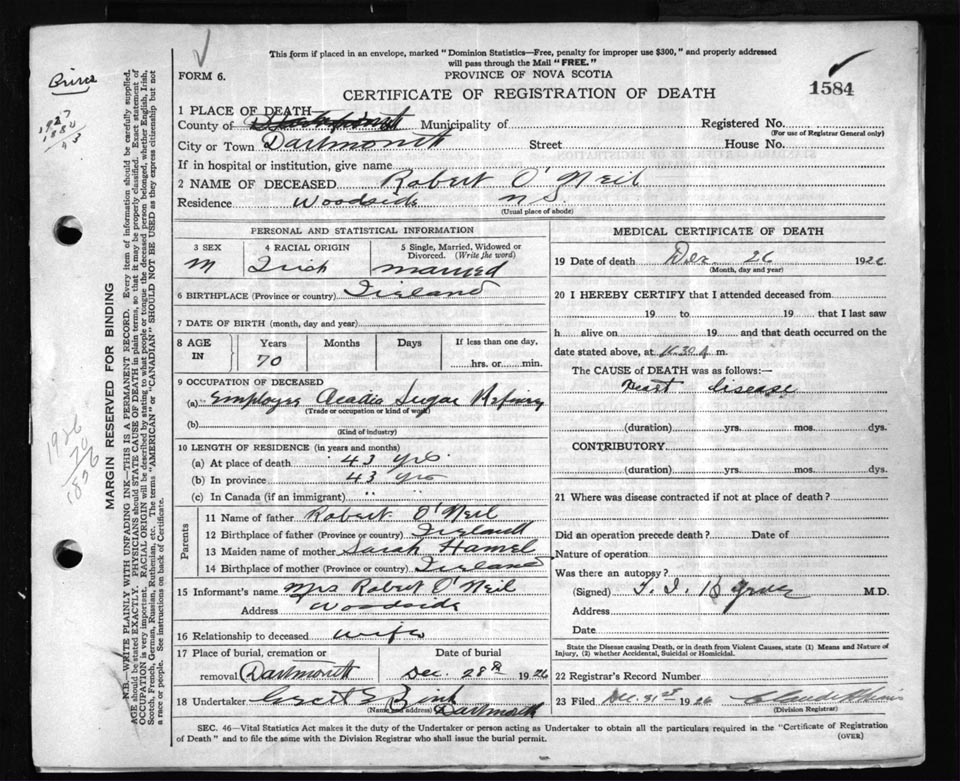 This form if placed in an envelope, marked "Dominion Statistics—Free, penalty for improper use $300," and properly addressed
will pass through the Mail "FREE."
FORM 6.
PROVINCE OF NOVA SCOTIA
CERTIFICATE OF REGISTRATION OF DEATH
1584
1 PLACE OF DEATH—
County of Municipality of Registered No.
(For use of Registrar General only)
City or Town Dartmouth Street House No.
If in hospital or institution, give name
2 NAME OF DECEASED Robert O'Neil
Residence Woodside N.S.
(Usual place of abode)
PERSONAL AND STATISTICAL INFORMATION
3 SEX 4 RACIAL ORIGIN 5 Single, Married, Widowed or
Divorced. (Write the word)
M Irish married
6 BIRTHPLACE (Province or country) Ireland
7 DATE OF BIRTH (month, day and year)
8 AGE IN Years Months Days If less than one day,
70 hrs. or min.
9 OCCUPATION OF DECEASED
(a) Employee Acadia Sugar Refinery
(Trade or occupation or kind of work)
(b)
(Kind of industry)
10 LENGTH OF RESIDENCE (in years and months)
(a) At place of death 43 yrs
(b) In province 43 yrs
(c) In Canada (if an immigrant) " "
Parents
11 Name of father Robert O'Neil
12 Birthplace of father (Province or country) Ireland
13 Maiden name of mother Sarah Hamel
14 Birthplace of mother (Province or country) Ireland
15 Informant's name Mrs Robert O'Neil
Address Woodside
16 Relationship to deceased wife
17 Place of burial, cremation or Date of burial
removal Dartmouth Dec. 28th 1926
18 Undertaker
(Name and address) Dartmouth
MEDICAL CERTIFICATE OF DEATH
19 Date of death Dec. 26 1926
(Month, day and year)
20 I HEREBY CERTIFY that I attended deceased from
19 to 19 that I last saw
h alive on 19 and that death occurred on the
date stated above, at m.
The CAUSE of DEATH was as follows:—
Heart disease
(duration) yrs. mos. dys.
CONTRIBUTORY
(duration) yrs. mos. dys.
21 Where was disease contracted if not at place of death?
Did an operation precede death? Date of
Nature of operation
Was there an autopsy?
(Signed) M.D.
Address
Date
State the Disease causing Death, or in death from Violent Causes, state (1) Means and Nature of
Injury, (2) whether Accidental, Suicidal or Homicidal.
22 Registrar's Record Number
23 Filed Dec. 31st 1926
(Division Registrar)
SEC. 46—Vital Statistics Act makes it the duty of the Undertaker or person acting as Undertaker to obtain all the particulars required in the "Certificate of Registration
of Death" and to file the same with the Division Registrar who shall issue the burial permit.
(OVER)
MARGIN RESERVED FOR BINDING
N.B.—WRITE PLAINLY WITH UNFADING INK—THIS IS A PERMANENT RECORD. Every item of information should be carefully supplied.
AGE should be stated EXACTLY. PHYSICIANS should STATE CAUSE OF DEATH in plain terms, so that it may be properly classified. Exact statement of
OCCUPATION is very important. RACIAL ORIGIN will be described by stating to what people or tongue the deceased person belonged, whether English, Irish,
Scotch, French, German, Russian, Ruthenian, etc. The terms "AMERICAN" or "CANADIAN" SHOULD NOT BE USED as they express citizenship but not
a race or people. See instructions on back of Certificate.
1926
70
1856